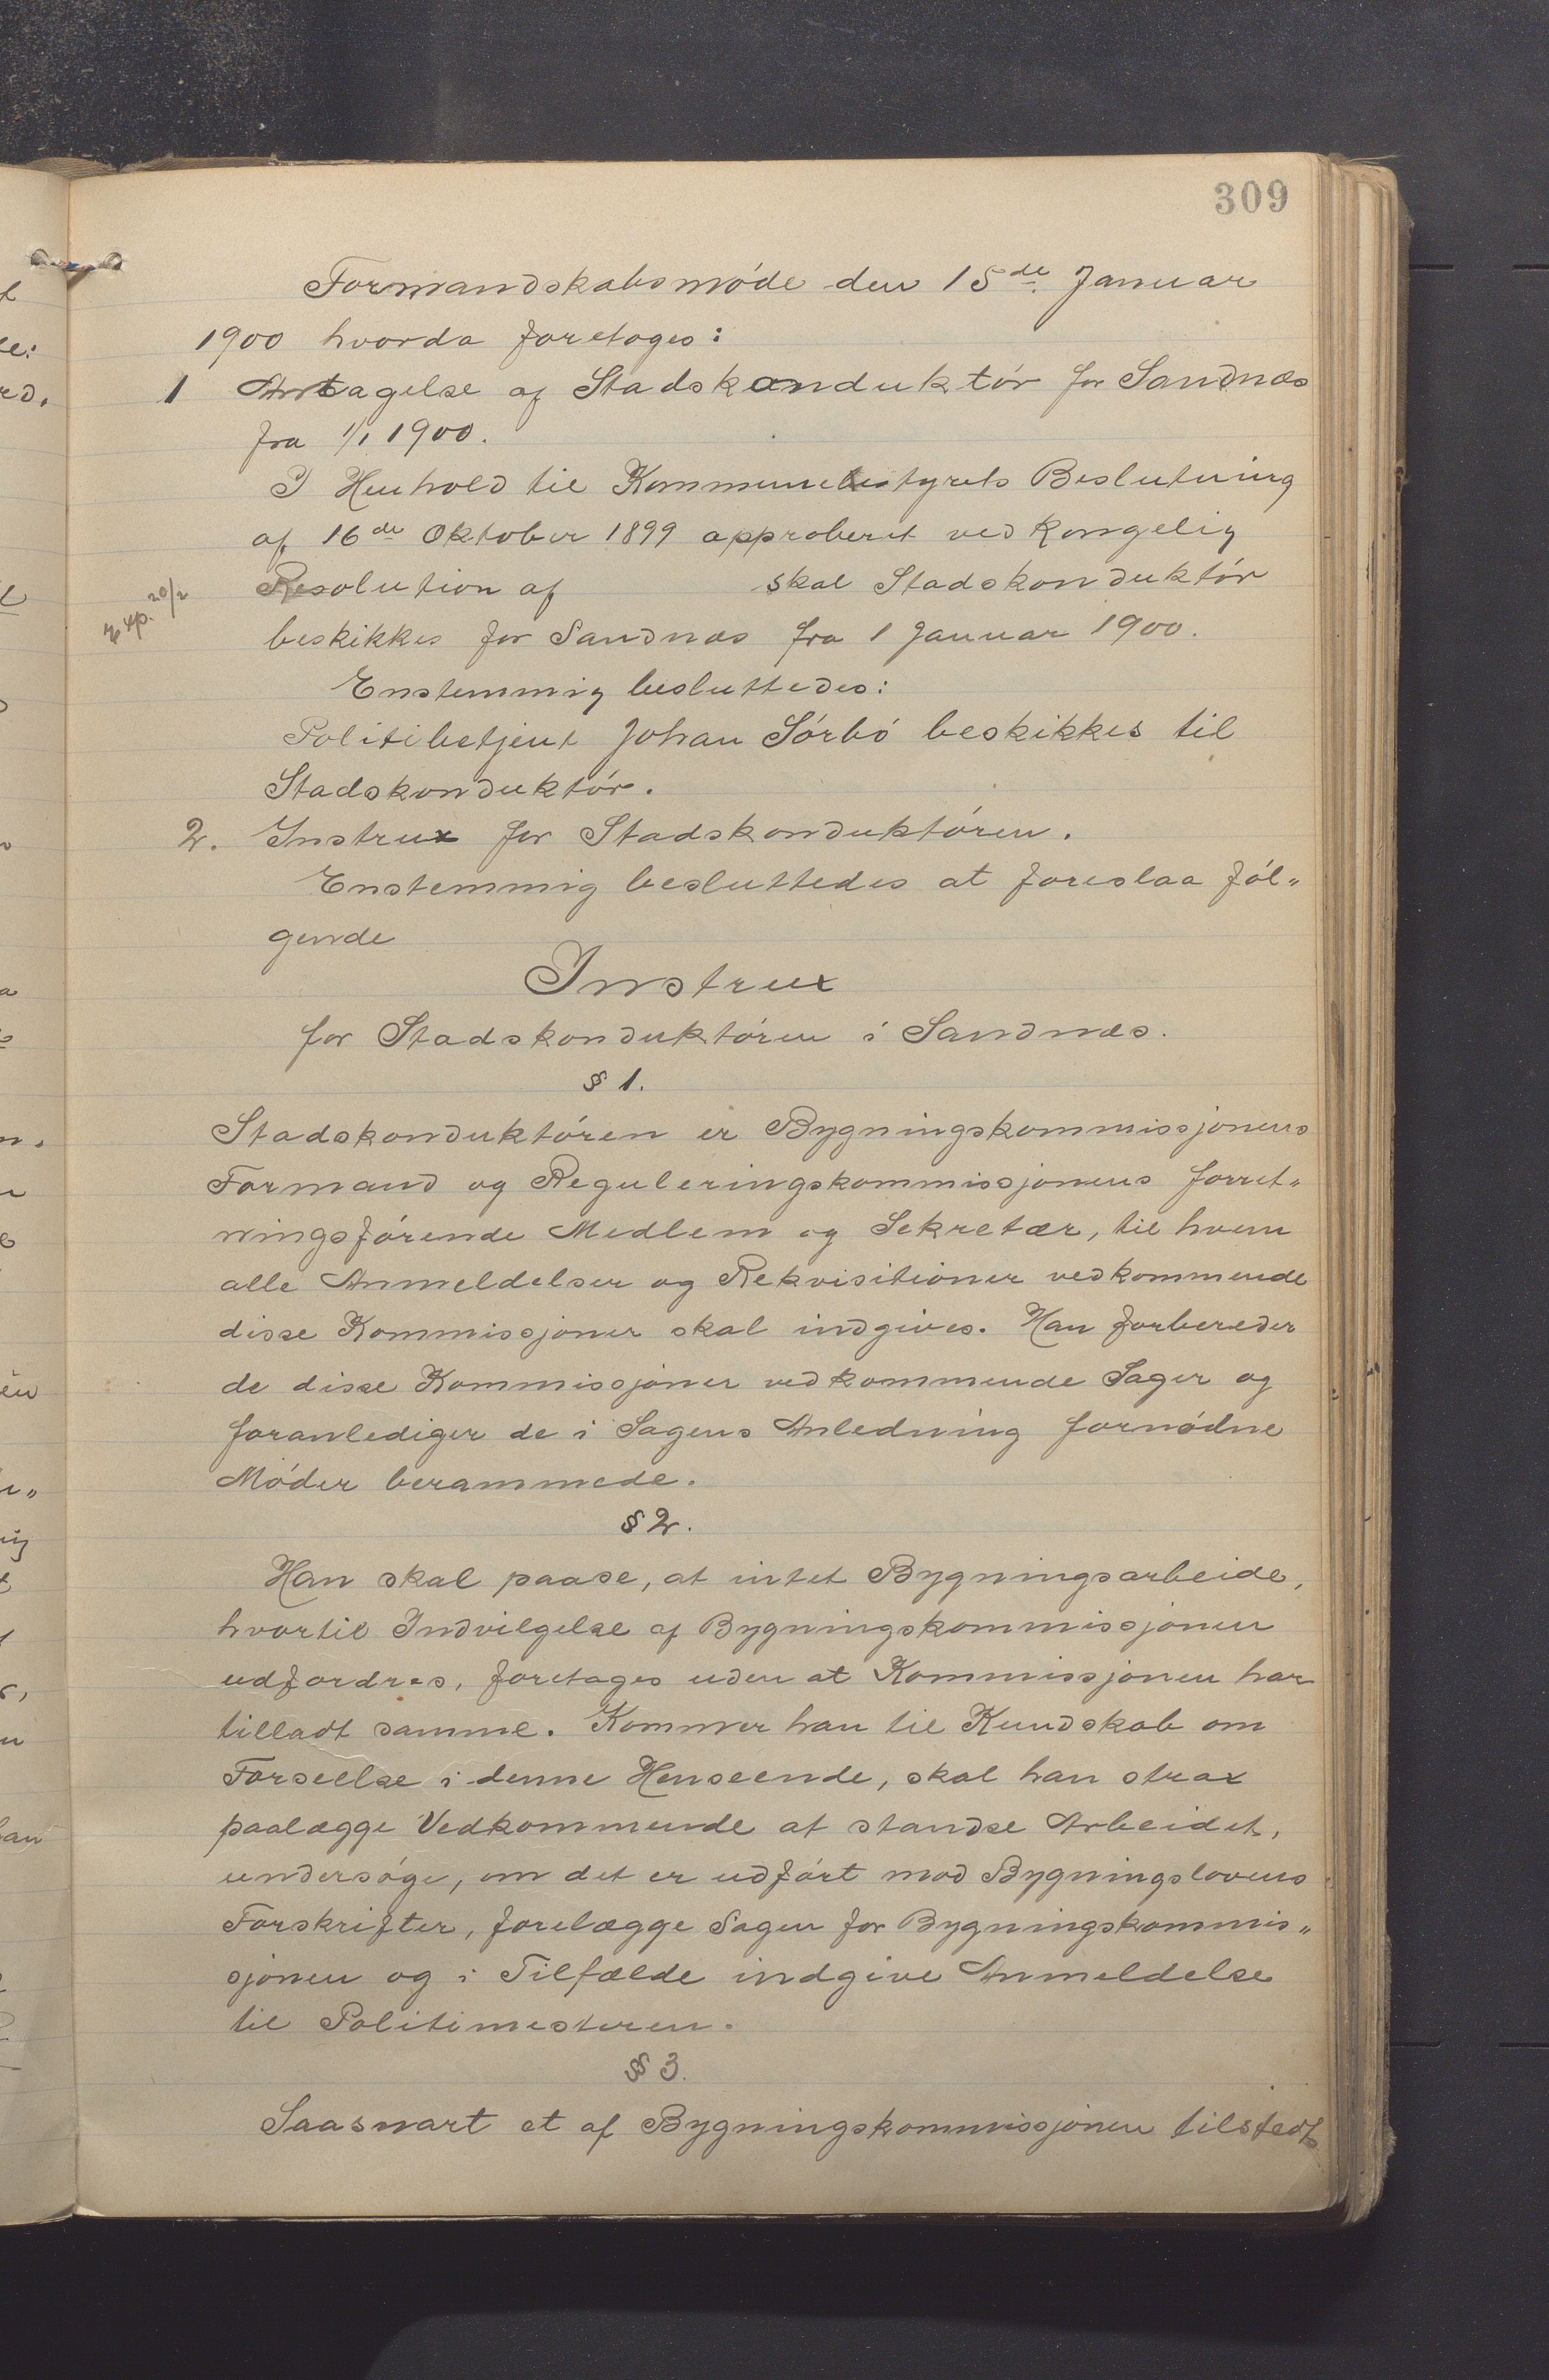 309
Formandskabsmóde den 15de Januar
1900 hvorda foretoges:
1 Antagelse af Stadskonduktór for Sandnæs
fra 1/1 1900.
I Henhold til Kommunebestyrets Beslutning
af 16de Oktober 1899 approberet ved Kongelig
Resolution af skal Stadskonduktór
Exp. 20/2
beskikkes for Sandnæs fra 1 Januar 1900.
Enstemmig besluttedes:
Politibetjent Johan Sórbó beskikkes til
Stadskonduktór.
2. Instrux for Stadskonduktóren.
Enstemmig besluttedes at foreslaa fól„
gende
Instrux
for Stadskonduktóren i Sandnæs.
§ 1.
Stadskonduktóren er Bygningskommissjonens
Formand og Reguleringskommissjonens forret„
ningsfórende Medlem og Sekretær, til hvem
alle Anmeldelser og Rekvisitioner vedkommende
disse Kommissjoner skal indgives. Han forbereder
de disse Kommissjoner vedkommende Sager og
foranlediger de i Sagens Anledning fornódne
Móder berammede.
§ 2.
Han skal paase, at intet Bygningsarbeide,
hvortil Indvilgelse af Bygningskommissjonen
udfordres, foretages uden at Kommissjonen har
tilladt samme. Kommer han til Kundskab om
Forseelse i denne Henseende, skal han strax
paalægge Vedkommende at standse Arbeidet,
undersóge, om det er udfórt mod Bygningslovens
Forskrifter, forelægge Sagen for Bygningskommis„
sjonen og i Tilfælde indgive Anmeldelse
til Politimesteren.
§ 3.
Saasnart et af Bygningskommissjonen tilstedt